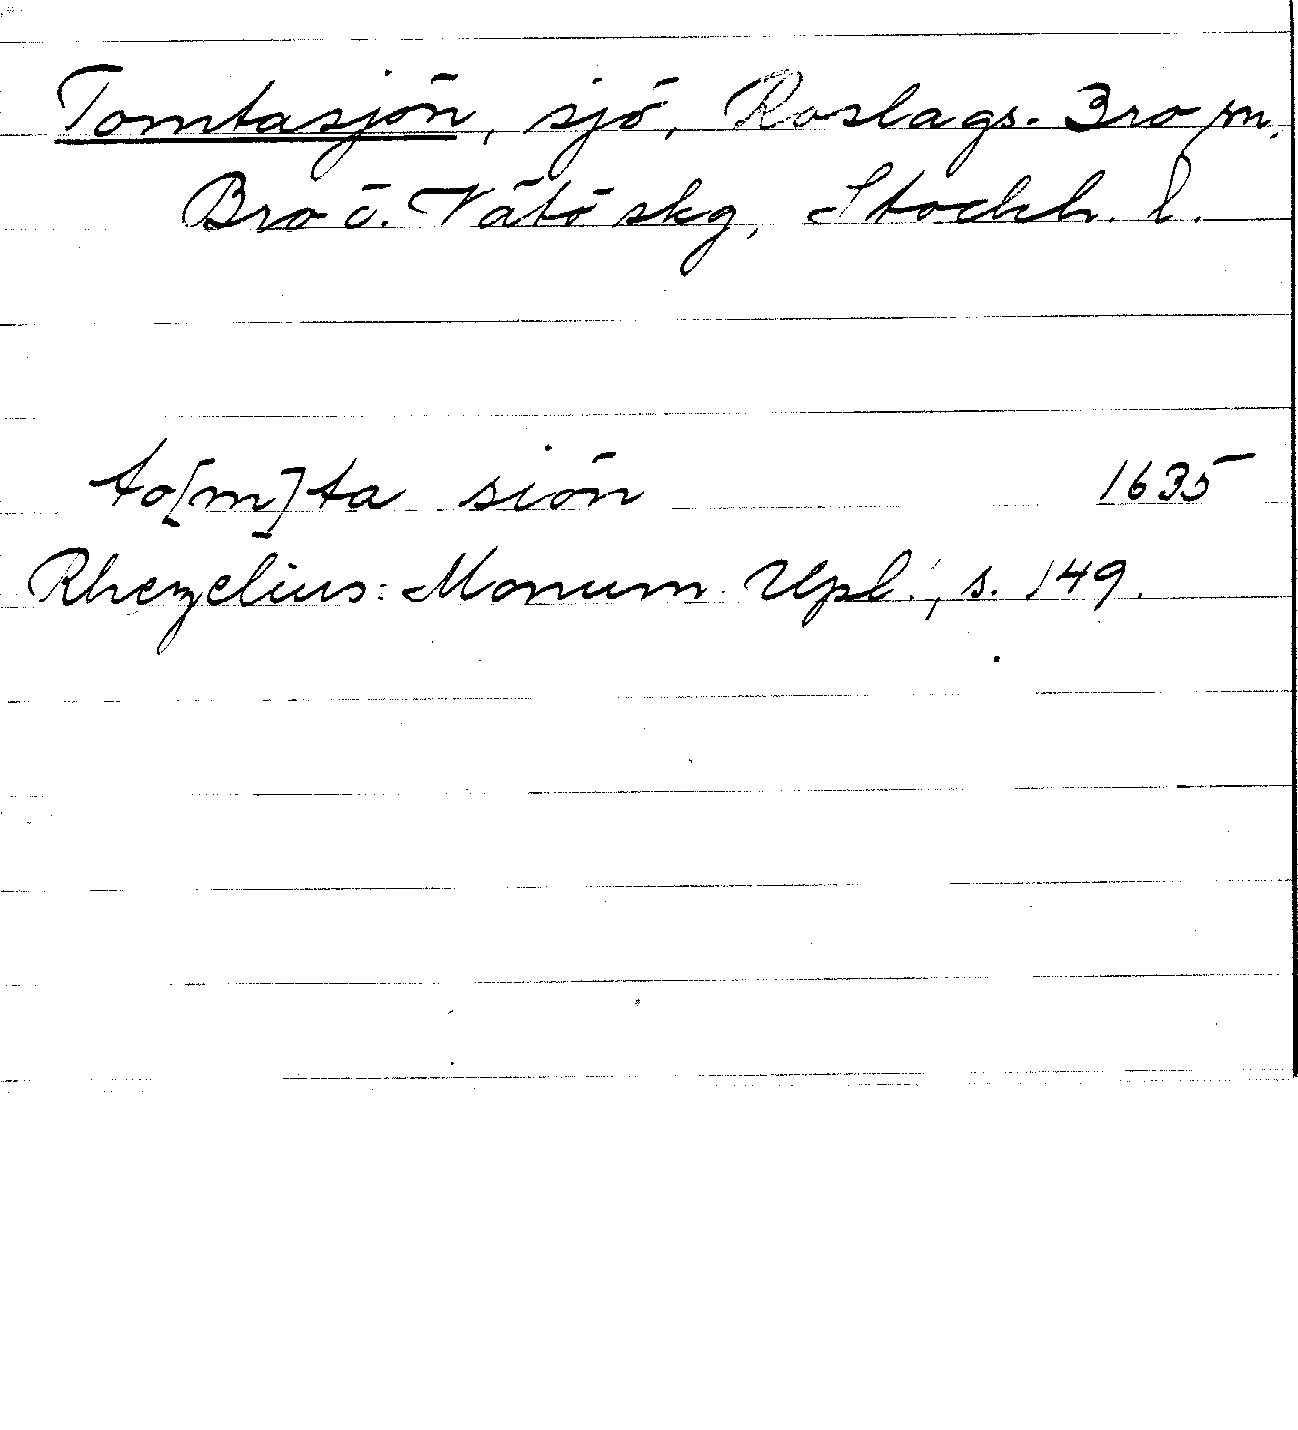 Tomtasjön, sjö, Roslags-Bro sn.
Bro o. Vätö skg, Stockh. l.
to[m]ta siön 1635
Rhezelius: Monum. Upl., s. 149.